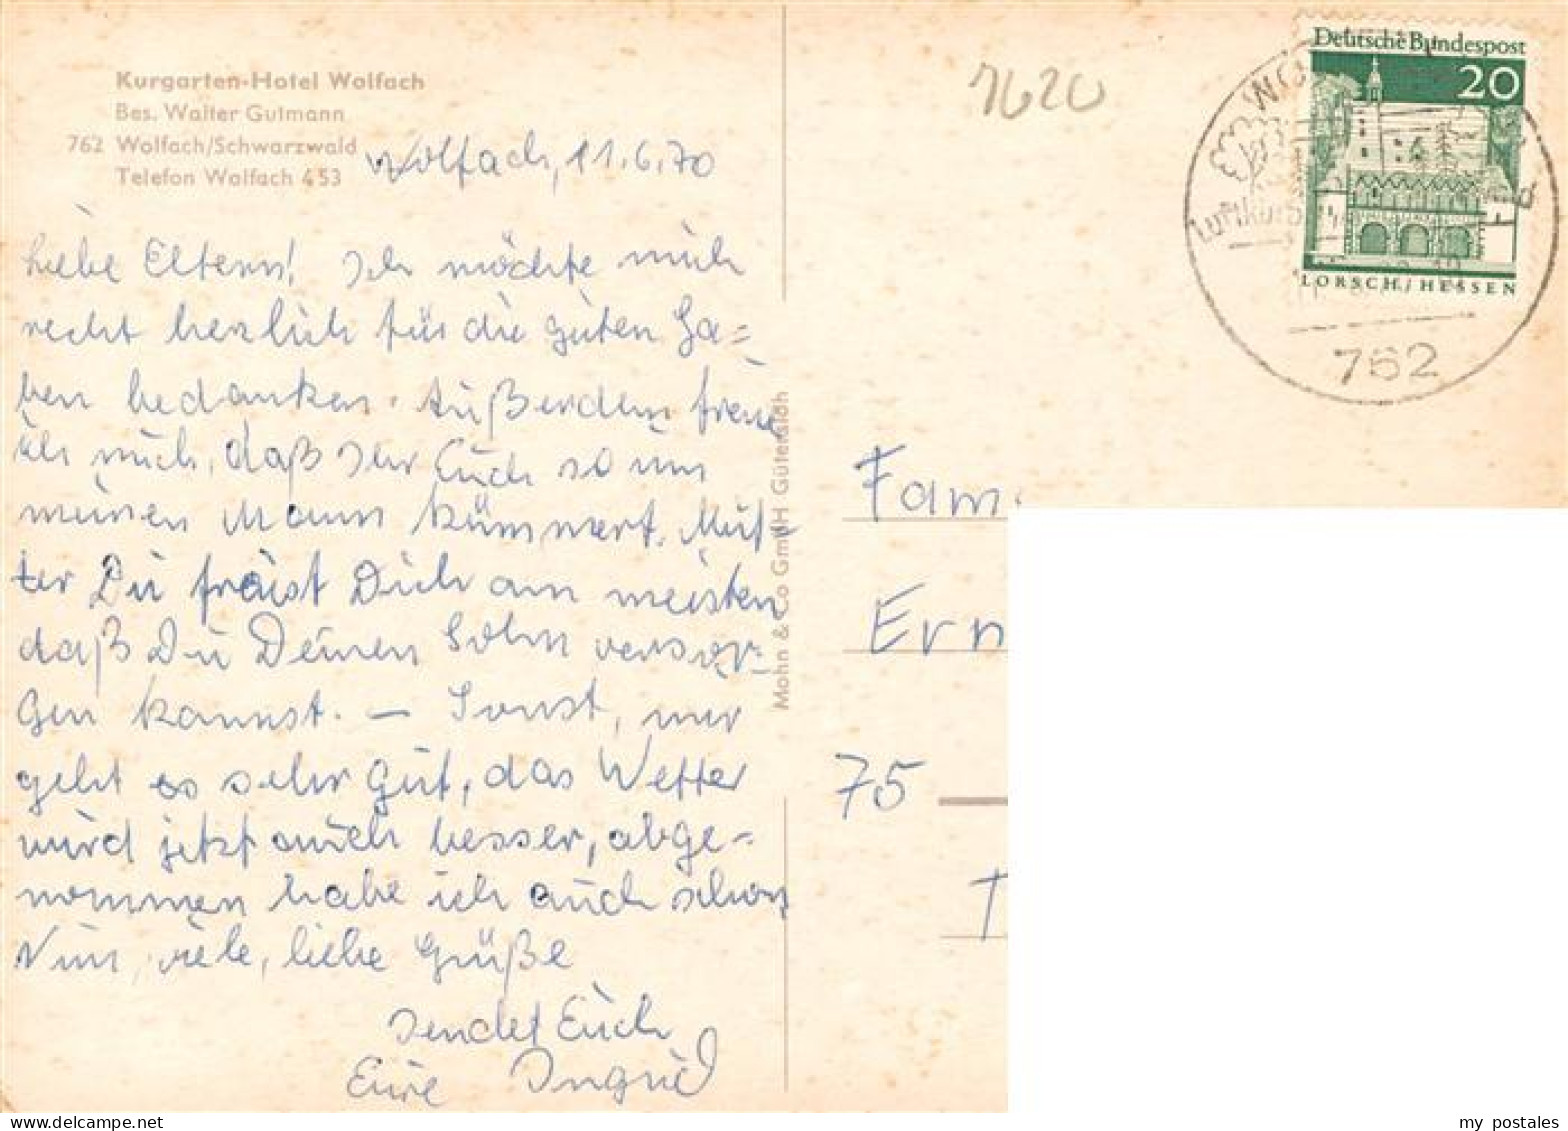 Kurgarten-Hotel Wolfach
Bes. Walter Gutmann
762 Wolfach/Schwarzwald
Telefon Wolfach 453
Wolfach, 11.6.70
Liebe Eltern! Ich möchte mich
recht herzlich für die guten Ga=
ben bedanken. Außerdem freue
ich mich, daß Ihr Euch so um
meinen Mann kümmert. Mut-
ter Du freust Dich am meisten
daß Du Deinen Sohn versor-
gen kannst. – Sonst, mir
geht es sehr gut, das Wetter
wird jetzt auch besser, abge-
nommen habe ich auch schon
Nun, viele, liebe Grüße
sendet Euch
Eure Ingrid
Mohn & Co GmbH Gütersloh
7620
Deutsche Bundespost
20
LORSCH/HESSEN
Luftkurort
762
Fam.
Ern
75